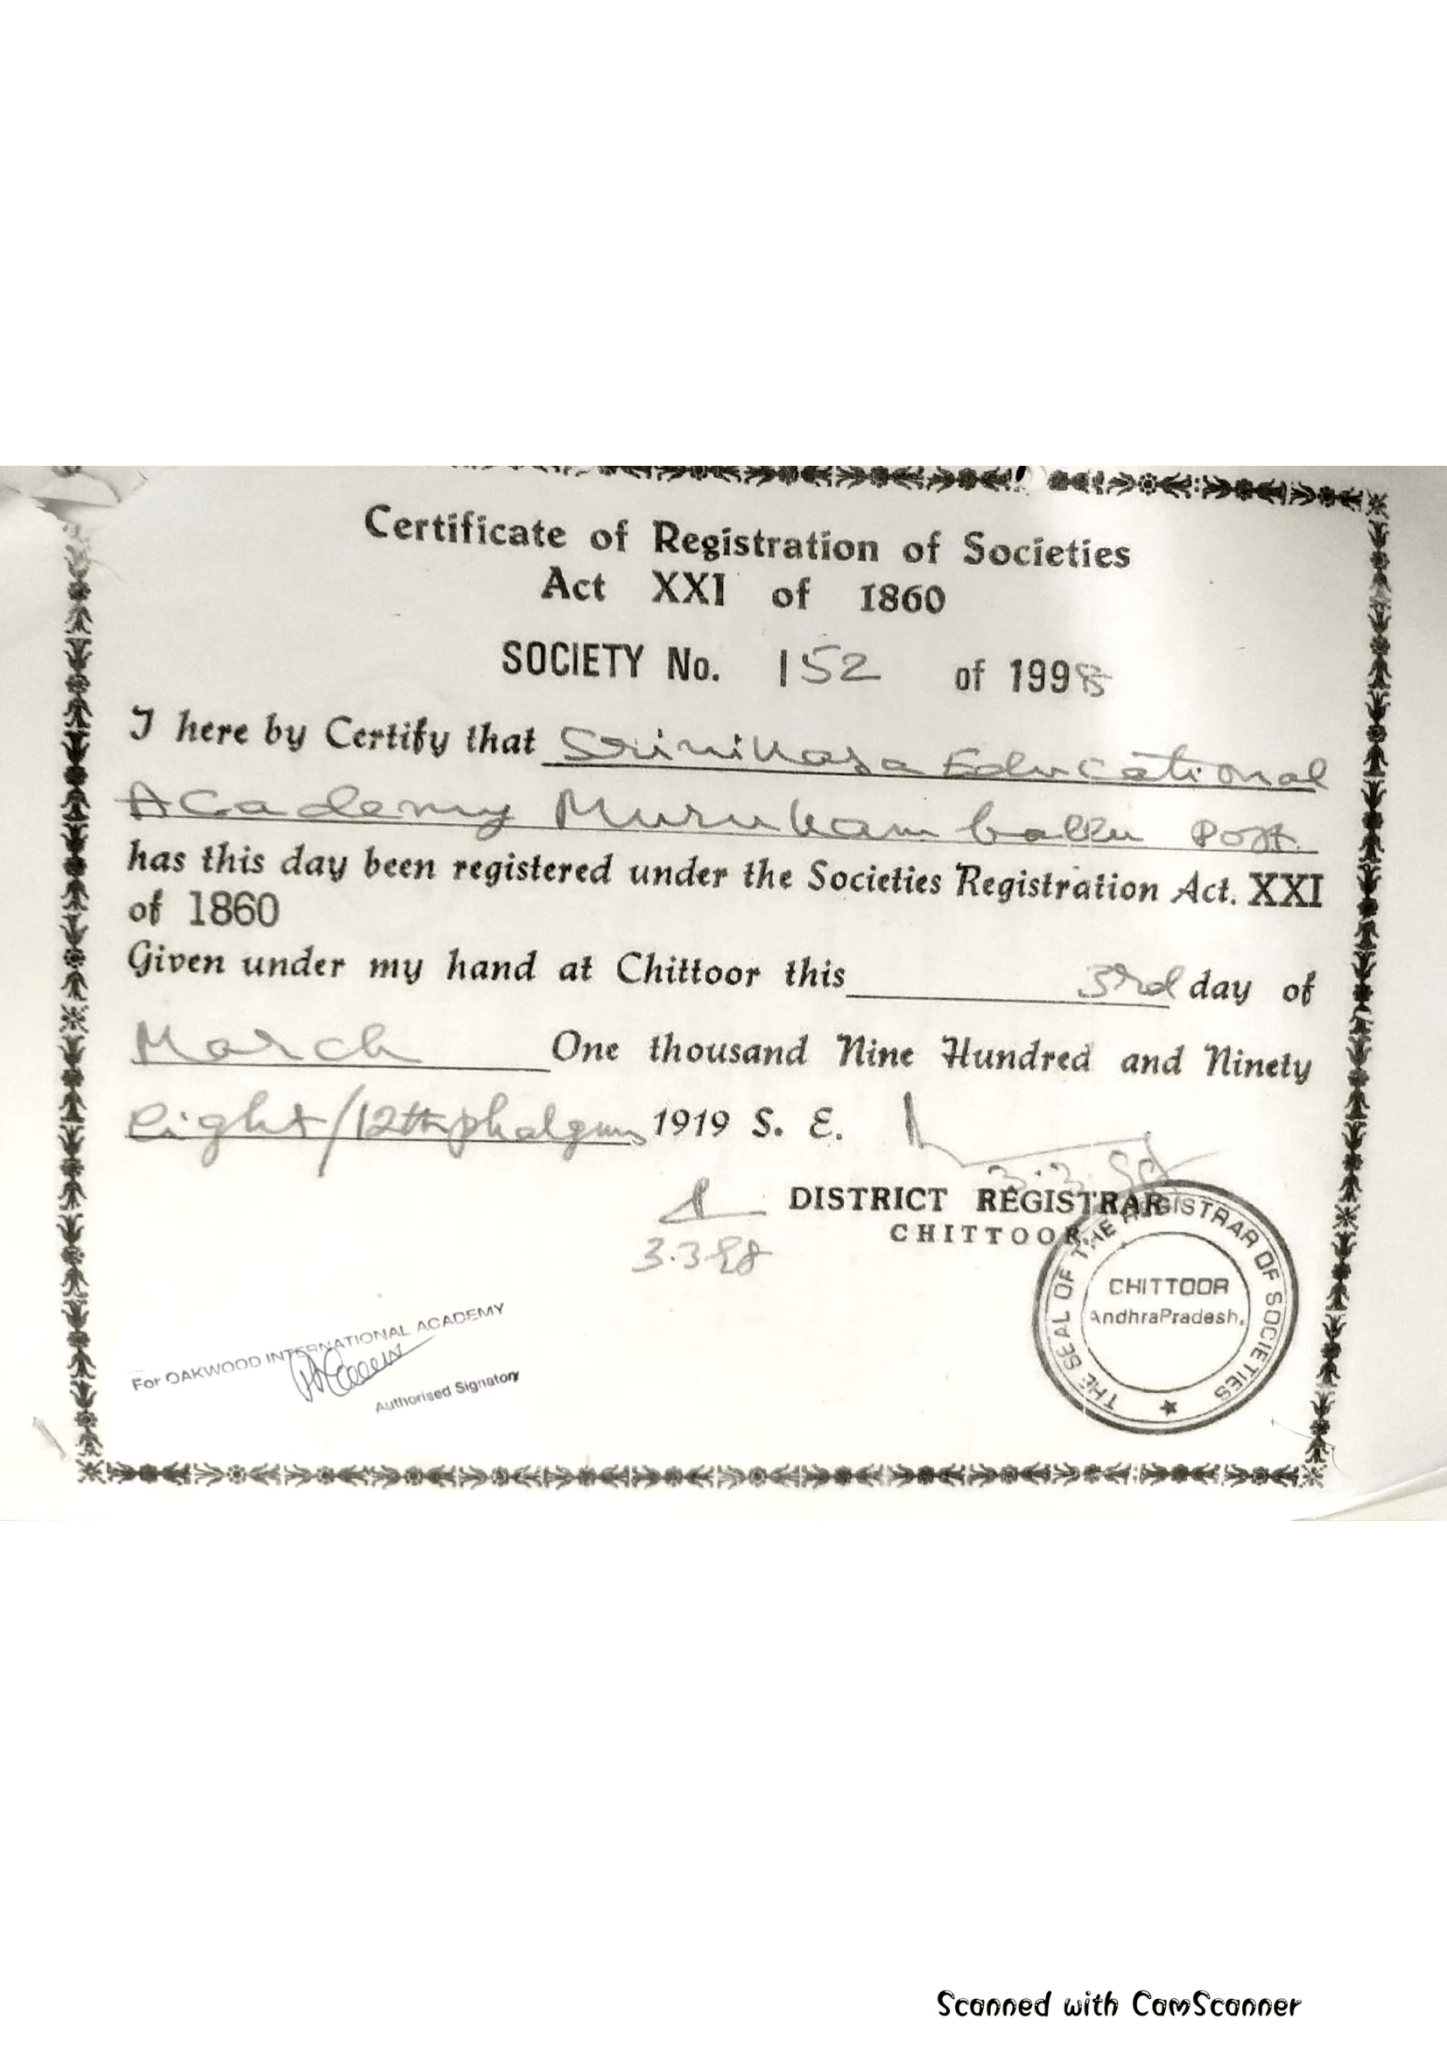 Certificate of Registration of Societies
Act XXI of 1860
SOCIETY No. 152 of 1998
I here by Certify that Srinivasa Educational
Academy Murukambattu Post
has this day been registered under the Societies Registration Act. XXI
of 1860
Given under my hand at Chittoor this 3rd day of
March One thousand Nine Hundred and Ninety
eight/12th phalguna 1919 S. E.
3.3.98
DISTRICT REGISTRAR
CHITTOOR
3.3.98
THE SEAL OF THE REGISTRAR OF SOCIETIES
CHITTOOR
AndhraPradesh.
For OAKWOOD INTERNATIONAL ACADEMY
Authorised Signatory
Scanned with CamScanner